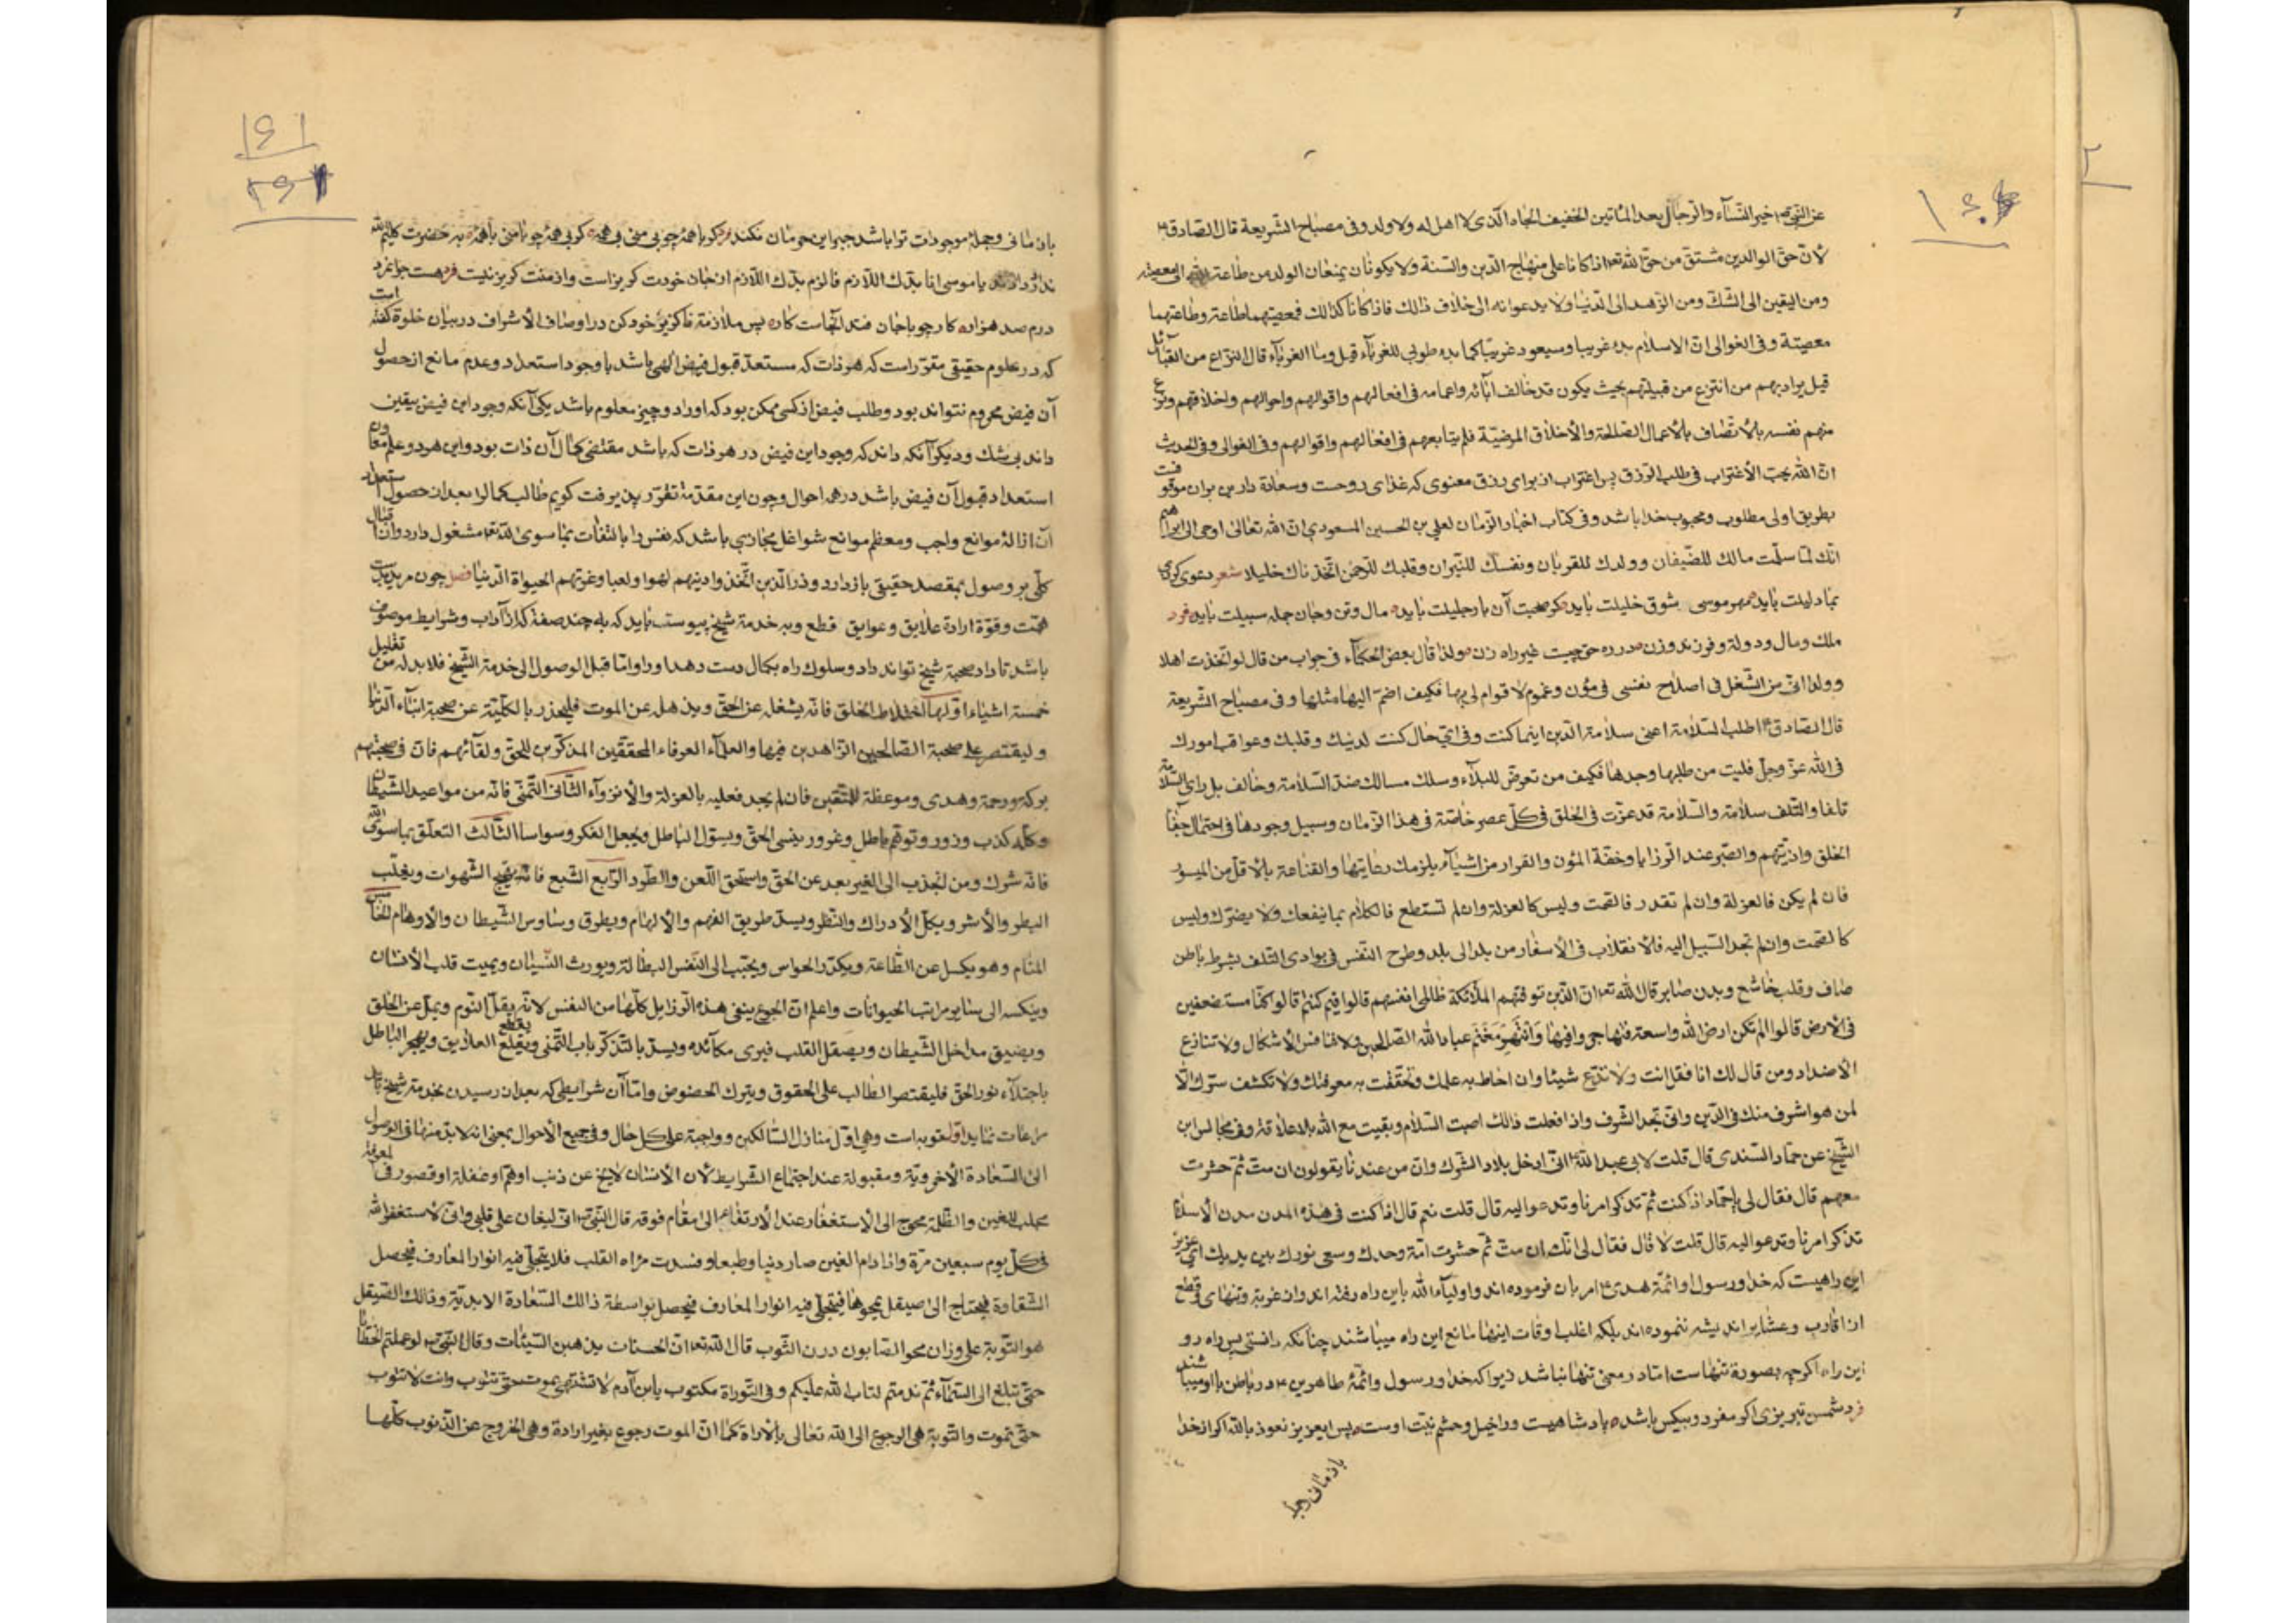 عن النبی ص خیر النسآء والرجال بعد المأتین الخفیف الحاد الذی لا اهل له ولا ولد وفی مصباح الشریعة قال الصادق ع
لأن حق الوالدین مشتق من حق الله تعه اذا کانا علی منهاج الدین والسنة ولا یکونان یمنعان الولد من طاعة الله الی معصیته
ومن الیقین الی الشک ومن الزهد الی الدنیا ولا یدعوانه الی خلاف ذالک فاذا کانا کذالک فمعصیتهما طاعة وطاعتهما
معصیة وفی الغوالی ان الاسلام بدء غریبا وسیعود غریبا کما بدء طوبی للغربآء قیل وما الغربآء قال النزاع من القبآئل
قیل یراد بهم من انتزع من قبیلتهم بحیث یکون قد خالف ابآئه واعمامه فی افعالهم واقوالهم واحوالهم واخلاقهم ونزع
منهم نفسه بالاتصاف بالأعمال الصالحة والأخلاق المرضیة فلم یتابعهم فی افعالهم واقوالهم وفی الغوالی وفی الحدیث
ان الله یحب الأغتراب فی طلب الرزق پس اغتراب از برای رزق معنوی که غذای روحست وسعادة دارین بران موقوفست
بطریق اولی مطلوب ومحبوب خدا باشد وفی کتاب اخبار الزمان لعلی بن الحسین المسعودی ان الله تعالی اوحی الی ابراهیم
انک لما سلمت مالک للضیفان وولدک للقربان ونفسک للنیران وقلبک للرحمن اتخذناک خلیلا شعر دعوی کردی
بما دلیلت باید مهر موسی بشوق خلیلت باید گر صحبت آن یار جلیلت باید مال وتن وجان جمله سبیلت باید فرد
ملک ومال ودولة وفرزند وزن در ره حق چیست غیر راه زن ولذا قال بعض الحکمآء فی جواب من قال لو اتخذت اهلا
وولدا انی من الشغل فی اصلاح نفسی فی مؤن وغموم لا قوام لی بها فکیف اضم الیها مثلها وفی مصباح الشریعة
قال الصادق ع اطلب السلامة اعنی سلامة الدین اینما کنت وفی ای حال کنت لدینک وقلبک وعواقب امورک
فی الله عز وجل فلیت من طلبها وجدها فکیف من تعرض للبلآء وسلک مسالک ضد السلامة وخالف بل رای السلامة
تلفا والتلف سلامة والسلامة قد عزت فی الخلق فی کل عصر خاصة فی هذا الزمان وسبیل وجودها فی احتمال جفآء
الخلق واذیتهم والصبر عند الرزایا وخفة المؤن والفرار من اشیآء یلزمک رعایتها والقناعة بالاقل من المیسور
فان لم یکن فالعزلة وان لم تقدر فالصمت ولیس کالعزلة وان لم تستطع فالکلام بما ینفعک ولا یضرک ولیس
کالصمت وان لم تجد السبیل الیه فالانقلاب فی الأسفار من بلد الی بلد وطرح النفس فی بوادی التلف بشرط باطن
صاف وقلب خاشع وبدن صابر قال الله تعه ان الذین توفیهم الملائکة ظالمی انفسهم قالوا فیم کنتم قالوا کنا مستضعفین
فی الأرض قالوا الم تکن ارض الله واسعة فتهاجروا فیها وانتهز مغنم عباد الله الصالحین ولا تنافس الأشکال ولا تنازع
الأضداد ومن قال لک انا فقل انت ولا تدع شیئا وان احاط به علمک وتحققت به معرفتک ولا تکشف سترک الا
لمن هو اشرف منک فی الدین وانی تجد الشرف واذا فعلت ذالک اصبت السلام وبقیت مع الله بلا علاقة وفی مجالس ابن
الشیخ عن حماد السندی قال قلت لابی عبد الله ع انی ادخل بلاد الشرک وان من عندنا یقولون ان مت ثم حشرت
معهم قال فقال لی یا حماد اذا کنت ثم تذکر امرنا وتدعو الیه قال قلت نعم قال اذا کنت فی هذه المدن مدن الأسلام
تذکر امرنا وتدعو الیه قال قلت لا قال فقال لی انک ان مت ثم حشرت امة وحدک وسعی نورک بین یدیک ای عزیز
این راهیست که خدا ورسول او ائمة هدی ع امر بان فرموده اند واولیآء الله باین راه رفته اند وان غربة وتنهای وقطع
از اقارب وعشایر اندیشه ننموده اند بلکه اغلب اوقات اینها مانع این راه میباشند چنانکه دانستی پس راه رو
این راه اگرچه بصورة تنهاست اما در معنی تنها نباشد زیرا که خدا ورسول وائمة طاهرین ع در باطن با او میباشند
فرد شمس تبریزی اگر مفرد وبیکس باشد پادشاهیست وراخیل وحشم نیت اوست پس ایعزیز نعوذ بالله اگر از خدا
باز مانی وجمله
باز مانی وجمله موجودات ترا باشد جبر این حرمان نکند فرد گر با همۀ چو بی منی بی همۀ گر بی همۀ چو با منی با همۀ به حضرت کلیم الله
یا موسی انا بدک اللازم فالزم بدک اللازم از جان خودت گریز است واز منت گریز نیست فرد هست
درم صد هزاره کار چو با جان فتد آنجاست کار پس ملازمة ناگزیر خود کن در اوصاف الأشراف در بیان خلوة گفته است
که در علوم حقیقی مقرر است که هر ذات که مستعد قبول فیض الهی باشد با وجود استعداد وعدم مانع از حصول
آن فیض محروم نتواند بود وطلب فیض از کسی ممکن بود که او را دو چیز معلوم باشد یکی آنکه وجود این فیض بیقین
داند بی شک ودیگر آنکه داند که وجود این فیض در هر ذات که باشد مقتضی کمال آن ذات بود واین هر دو علم مقارن
استعداد قبول آن فیض باشد در همه احوال وچون این مقدمة تقرر پذیرفت گویم طالب کمال را بعد از حصول استعداد
آن ازالۀ موانع واجب ومعظم موانع شواغل مجازی باشد که نفس را بالتفات بما سوی الله تعه مشغول دارد واز اقبال
کلی بر وصول بمقصد حقیقی باز دارد وذر الذین اتخذوا دینهم لهوا ولعبا وغرتهم الحیوة الدنیا فصل چون مرید
همت وقوة ارادة علایق وعوایق قطع وبه خدمة شیخ پیوست باید که به چند صفة کذا آداب وشرایط موصوف
باشد تا داد صحبة شیخ تواند داد وسلوک راه بکمال دست دهد او را واما قبل الوصول الی خدمة الشیخ فلا بد له من تقلیل
خمسة اشیاء اولها اختلاط الخلق فانه یشغله عن الحق ویذهله عن الموت فلیحذر بالکلیة عن صحبة ابنآء الدنیا
ولیقتصر علی صحبة الصالحین الزاهدین فیها والعلمآء العرفاء المحققین المذکرین للحق ولقآئهم فان فی صحبتهم
برکة ورحمة وهدی وموعظة للمتقین فان لم یجد فعلیه بالعزلة والأنزوآء الثانی التمنی فانه من مواعید الشیطان
وکله کذب وزور وتوهم باطل وغرور ینسی الحق ویسول الباطل ویجعل الفکر وسواسا الثالث التعلق بما سوی الله
فانه شرک ومن انجذب الی الغیر بعد عن الحق واستحق اللعن والطرد الرابع الشبع فانه یهیج الشهوات ویغلب
البطر والأشر ویکل الأدراک والنظر ویسد طریق الفهم والألهام ویطرق وساوس الشیطان والأوهام
المنام وهو یکسل عن الطاعة ویکدر الحواس ویحبب الی النفس البطالة ویورث النسیان ویمیت قلب الأنسان
وینکسه الی سایر مراتب الحیوانات واعلم ان الجوع ینفی هذه الرذایل کلها من النفس لانه یقل النوم ویمل عن الخلق
ویضیق مداخل الشیطان ویصقل القلب فیری مکآئده ویسد بالتذکر باب التمنی ویقطع ویقلع العلایق ویهجر الباطل
باجتلآء نور الحق فلیقتصر الطالب علی الحقوق ویترک الحضوض واما آن شرایطی که بعد از رسیدن بخدمة شیخ باید
مراعات نماید اول توبه است وهی اول منازل السالکین وواجبة علی کل حال وفی جمیع الأحوال بمعنی انه لا بد منها فی الوصول
الی السعادة الأخرویة ومقبولة عند اجتماع الشرایط لأن الأنسان لا یخ عن ذنب او هم او غفلة او قصور فی المعرفة
مجلب للغین والظلمة محوج الی الاستغفار عند الأرتقاء الی مقام فوقه قال النبی ص انی لیغان علی قلبی وانی لأستغفر الله
فی کل یوم سبعین مرة واذا دام الغین صار دنیا وطبعا وفسدت مرآة القلب فلا یتجلی فیه انوار المعارف فیحصل
الشقاوة فیحتاج الی صیقل یجوها فیتجلی فیه انوار المعارف فیحصل بواسطة ذالک السعادة الابدیة وذالک الصیقل
هو التوبة علی وزان محو الصابون درن الثوب قال الله تعه ان الحسنات یذهبن السیئات وقال النبی ص لو عملتم الخطایا
حتی تبلغ الی السمآء ثم ندمتم لتاب الله علیکم وفی التوراة مکتوب یابن آدم لا تشتهی بموت حتی تتوب وانت لا تتوب
حتی تموت والتوبة هی الرجوع الی الله تعالی بالأرادة کما ان الموت رجوع بغیر ارادة وهی الخروج عن الذنوب کلها